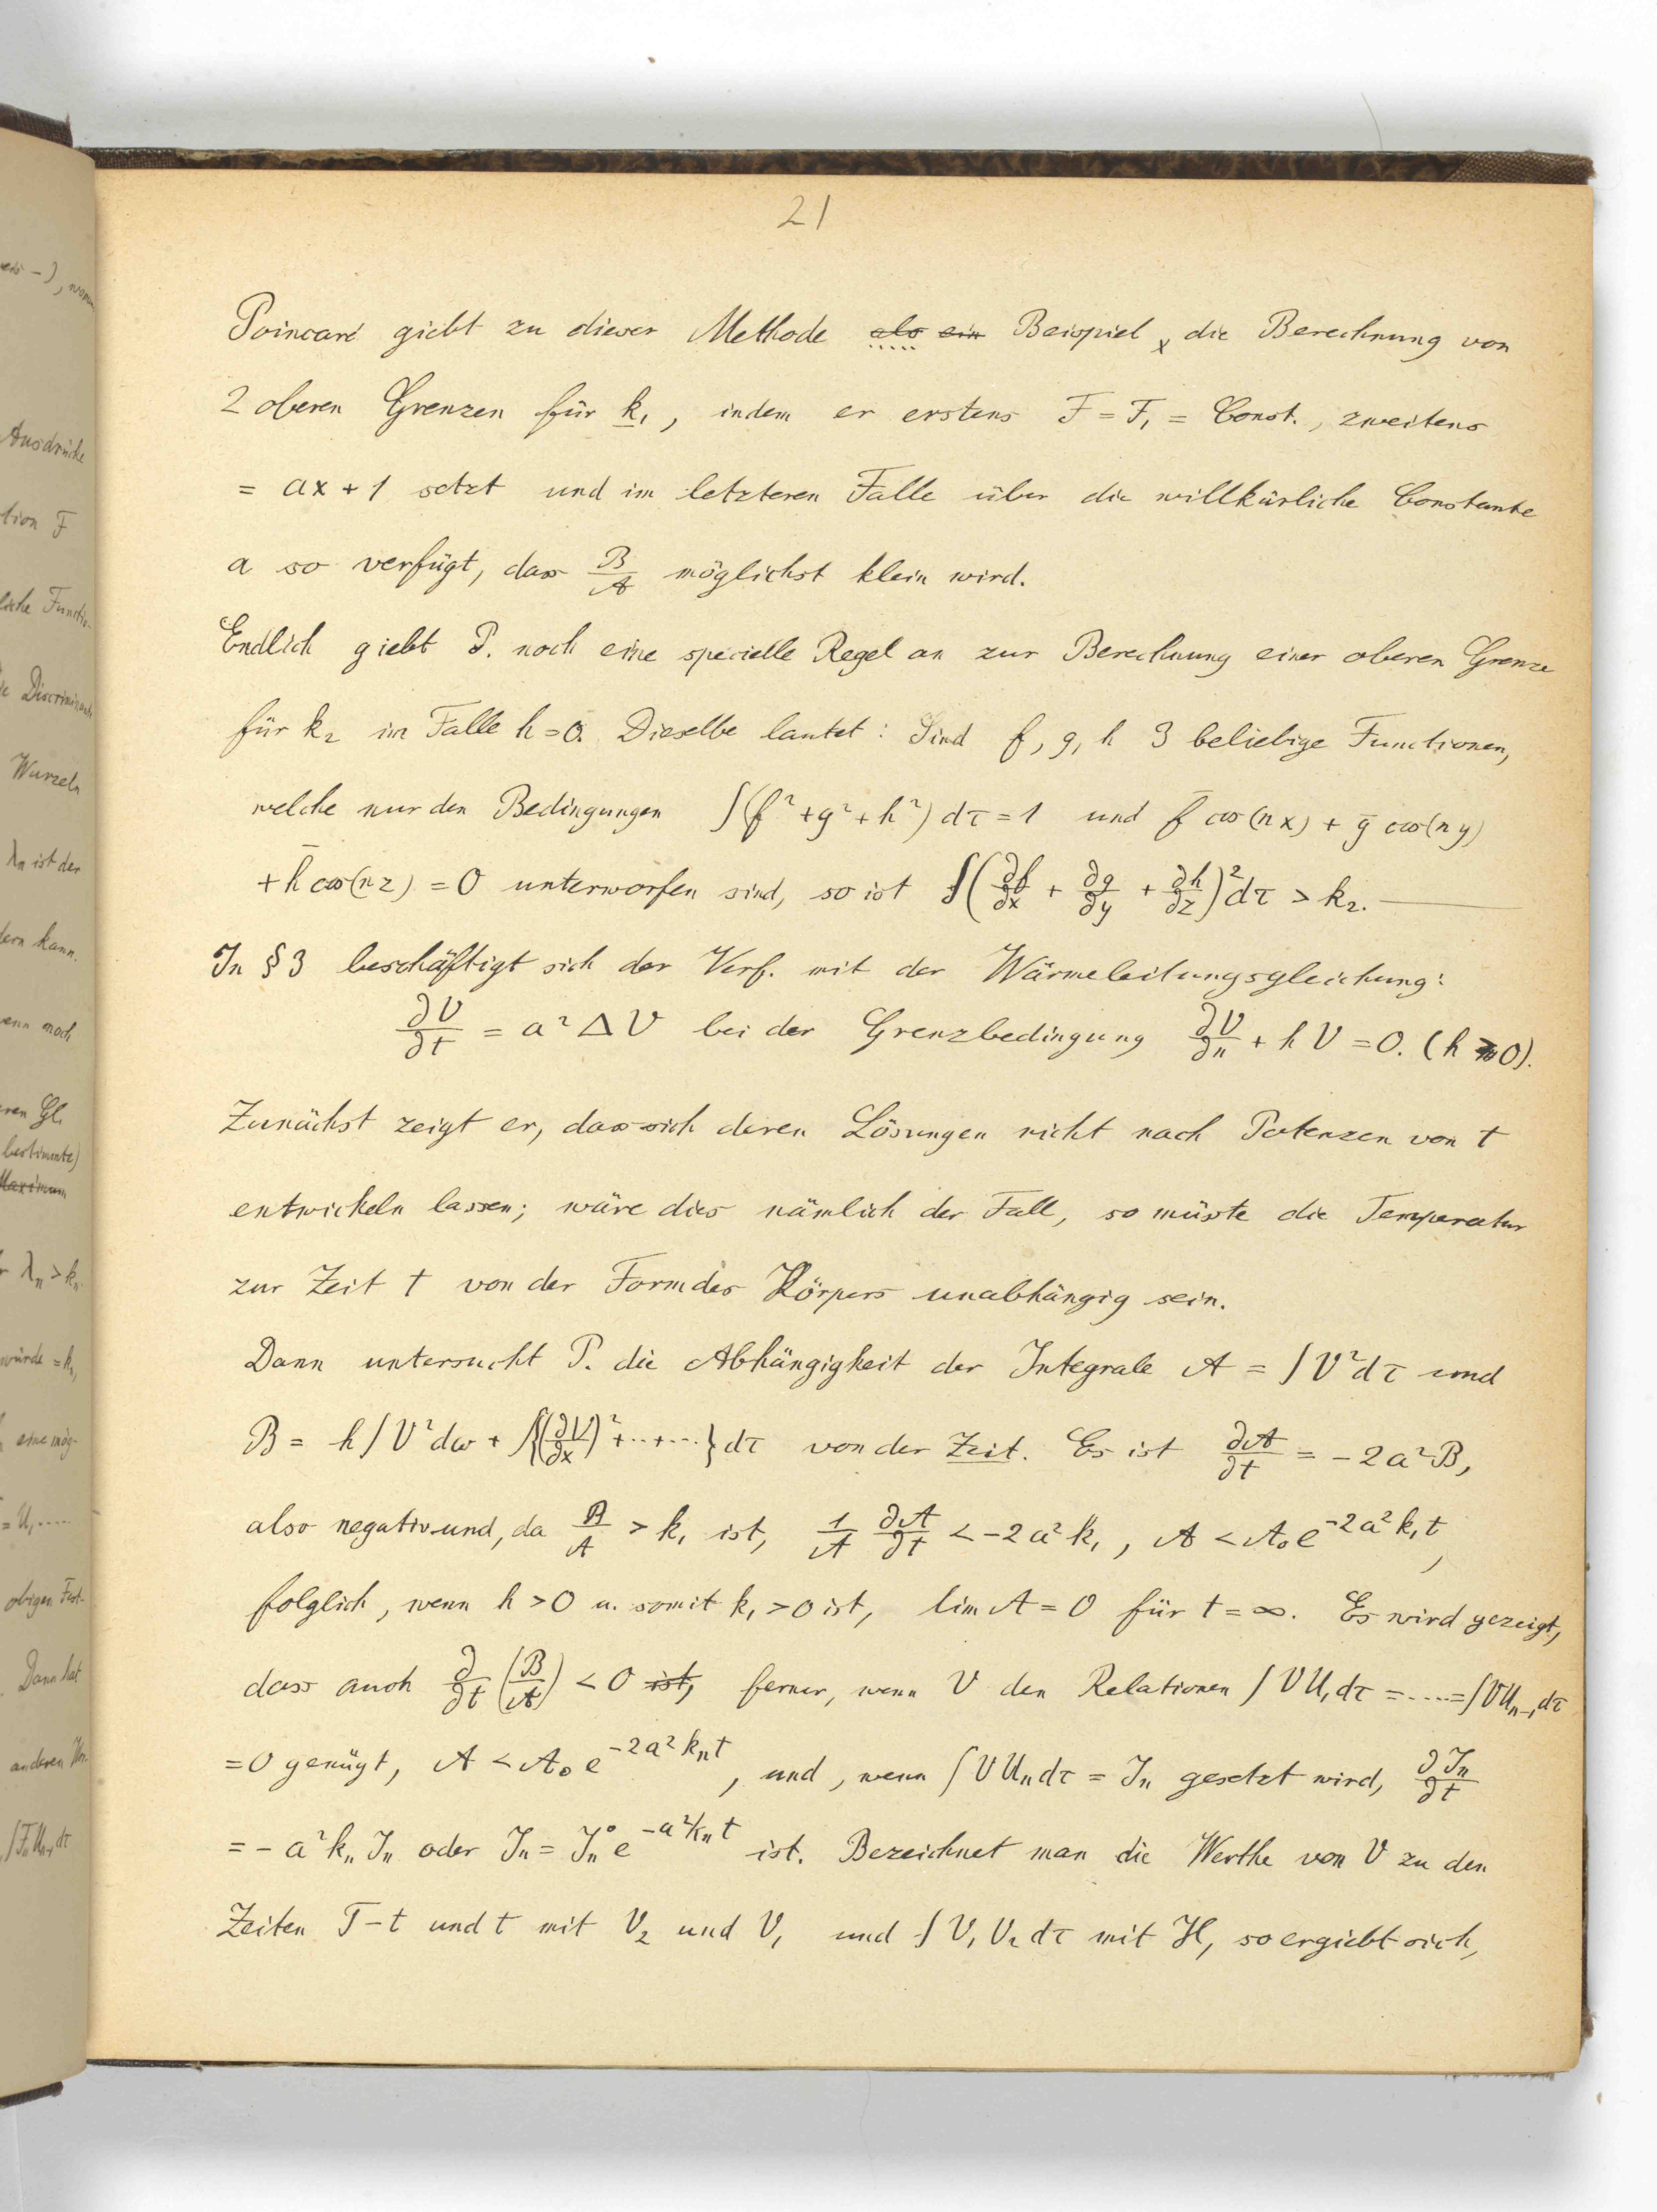 21
Poincaré giebt zu dieser Methode als ein Beispiel x die Berechnung von
2 oberen Grenzen für k₁, indem er erstens F = F₁ = Const., zweitens
= ax + 1 setzt und im letzteren Falle über die willkürliche Constante
a so verfügt, dass B/A möglichst klein wird.
Endlich giebt P. noch eine specielle Regel an zur Berechnung einer oberen Grenze
für k₂ im Falle h = 0. Dieselbe lautet: Sind f, g, h 3 beliebige Functionen,
welche nur den Bedingungen ∫(f² + g² + h²) dτ = 1 und f̄ cos(nx) + ḡ cos(ny)
+ h̄ cos(nz) = 0 unterworfen sind, so ist ∫(∂f/∂x + ∂g/∂y + ∂h/∂z)² dτ > k₂. —
In § 3 beschäftigt sich der Verf. mit der Wärmeleitungsgleichung:
∂V/∂t = a² ΔV bei der Grenzbedingung ∂V/∂n + hV = 0. (h ≥ 0).
Zunächst zeigt er, dass sich deren Lösungen nicht nach Potenzen von t
entwickeln lassen; wäre dies nämlich der Fall, so müsste die Temperatur
zur Zeit t von der Form des Körpers unabhängig sein.
Dann untersucht P. die Abhängigkeit der Integrale A = ∫V² dτ und
B = h∫V² dω + ∫{(∂V/∂x)² + ·· + ···} dτ von der Zeit. Es ist ∂A/∂t = -2a²B,
also negativ und, da B/A > k₁ ist, 1/A ∂A/∂t < -2a²k₁, A < A₀e^(-2a²k₁t),
folglich, wenn h > 0 u. somit k₁ > 0 ist, lim A = 0 für t = ∞. Es wird gezeigt,
dass auch ∂/∂t (B/A) < 0 ist, ferner, wenn V den Relationen ∫VU₁dτ = ····· = ∫VUₙ₋₁dτ
= 0 genügt, A < A₀e^(-2a²kₙt), und, wenn ∫VUₙdτ = Jₙ gesetzt wird, ∂Jₙ/∂t
= - a²kₙJₙ oder Jₙ = Jₙ⁰e^(-a²kₙt) ist. Bezeichnet man die Werthe von V zu den
Zeiten T - t und t mit V₂ und V₁ und ∫V₁V₂dτ mit H, so ergiebt sich,
Ausdrücke
tion F
Wurzeln
λₙ ist der
dern kann.
λₙ > kₙ.
würde = k₁,
obigen Fest-
Dann hat
anderen